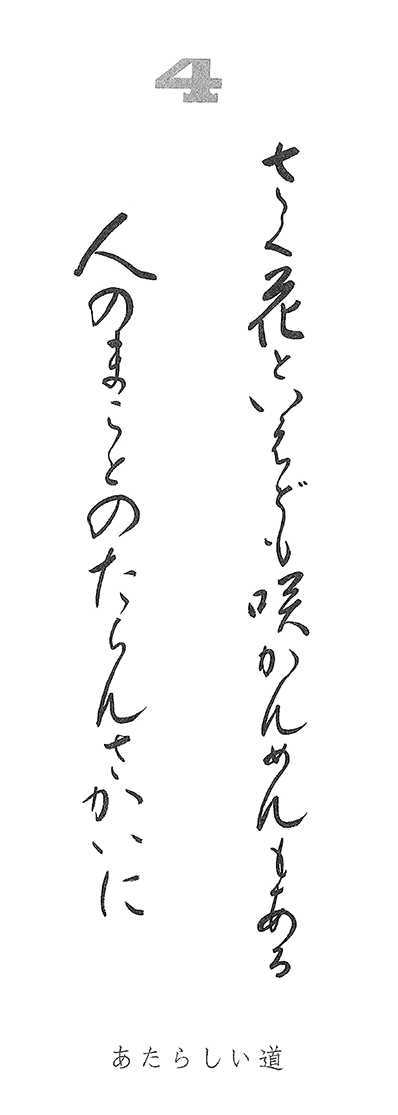 4
さく花といえども咲かんめんもある
人のまことのたらんさかいに
あたらしい道